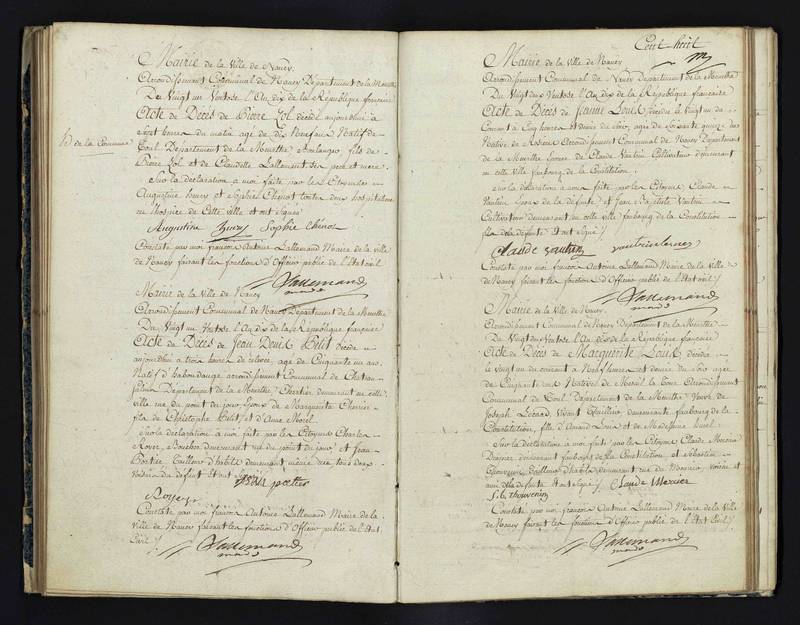 Mairie de la Ville de Nancy.
Arrondissement Communal de Nancy Département de la Meurthe
Du Vingt un Ventose l'An dix de la République française
Acte de Décès de Pierre décédé aujourd'hui à
sept heures du matin agé de dix neuf ans Natif de
Toul Département de la Meurthe Boulanger fils de
Pierre et de Lallement ses pere et mere.
Sur la déclaration à moi faite par les Citoyennes
Augustine et Sophie Chenot toutes deux hospitalieres
en l'hospice de Cette ville et ont signées
H de la Commune
Augustine Sophie Chénot
Constaté par moi françois Antoine Lallemand Maire de la ville
de Nancy faisant les fonctions d'Officier public de l'Etat civil
Lallemand
Mairie de la Ville de Nancy
Arrondissement Communal de Nancy Département de la Meurthe
Du Vingt un Ventose l'An dix de la République française
Acte de Décès de Jean Denis Petit décédé
aujourd'hui à trois heures de agé de Cinquante un ans
Natif d' arrondissement Communal de Chateau
Salins Département de la Meurthe demeurant en cette
ville rue du pont époux de Marguerite
fils de Christophe Petit et d'Anne
Sur la déclaration à moi faite par les Citoyens Charles
Royer, demeurant rue du pont et Jean
Tailleur d'habit demeurant même rue tous deux
voisins du défunt et ont signé
Royer
Constaté par moi françois Antoine Lallemand Maire de la
Ville de Nancy faisant les fonctions d'Officier public de l'Etat
Civil
Lallemand
Cent huit
Mairie de la Ville de Nancy
Arrondissement Communal de Nancy Département de la Meurthe
Du Vingt un Ventose l'An dix de la République française
Acte de Décès de Jeanne Louis décédée le Vingt un du
Courant à Cinq heures et demie du soir, agée de soixante quinze ans
Native de arrondissement Communal de Nancy Département
de la Meurthe Epouse de Claude Vautrin Cultivateur demeurant
en cette Ville faubourg de la Constitution.
Sur la déclaration à moi faite par les Citoyens Claude
Vautrin époux de la défunte et Jean Baptiste Vautrin
Cultivateur demeurant en cette ville faubourg de la Constitution
fils de la défunte et ont signé
Claude vautrin
Constaté par moi françois Antoine Lallemand Maire de la Ville
de Nancy faisant les fonctions d'Officier public de l'Etat civil
Lallemand
Mairie de la Ville de Nancy.
Arrondissement Communal de Nancy Département de la Meurthe
Du Vingt un Ventose l'An dix de la République française
Acte de Décès de Marguerite Louis décédée
le vingt un du courant à Neuf heures et demie du soir agée
de Cinquante ans Native de Arrondissement
Communal de Toul Département de la Meurthe Veuve de
Joseph demeurante faubourg de la
Constitution, fille d'Amand Louis et de
Sur la déclaration à moi faite par les Citoyens Claude Mercier
demeurant faubourg de la Constitution, et Sébastien
Thouvenin Tailleur d'habit, demeurant rue du voisin et
ami de la défunte et ont signé Claude Mercier
thouvenin
Constaté par moi françois Antoine Lallemand Maire de la Ville
de Nancy faisant les fonctions d'Officier public de l'Etat Civil
Lallemand